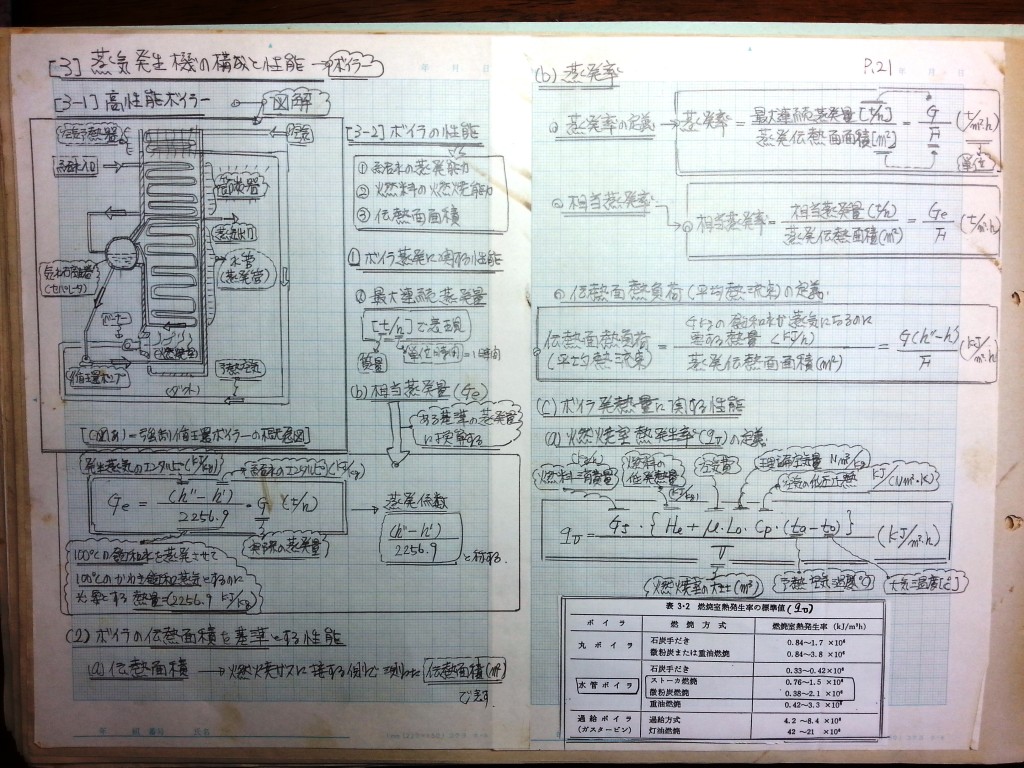 [3] 蒸気発生機の構成と性能 → ボイラー
[3-1] 高性能ボイラー → 図解
空気予熱器
給水入口
空気
節炭器
蒸気出口
水管
(蒸発管)
気水分離器
(セパレータ)
バーナー
循環ポンプ
予熱空気
[(図あ) = 強制循環ボイラーの概念図]
[3-2] ボイラの性能
① 給水の蒸発能力
② 燃料の燃焼能力
③ 伝熱面面積
(1) ボイラ蒸発に関する性能
(a) 最大連続蒸発量
[t/h] で表現
質量
単位時間=1時間
(b) 相当蒸発量 (Ge)
ある基準の蒸発量
に換算する
発生蒸気のエンタルピー(kJ/kg)
給水のエンタルピー(kJ/kg)
Ge = (h''-h')/2256.9 ・G (t/h)
実際の蒸発量
蒸発係数
(h''-h')/2256.9
と称する。
100℃の飽和水を蒸発させて
100℃のかわき飽和蒸気とするのに
必要とする熱量=(2256.9 kJ/kg)
(2) ボイラの伝熱面積を基準とする性能
(a) 伝熱面積 → 燃焼ガスに接する側で測った 伝熱面積(m²)
で表す
P.21
(b) 蒸発率
蒸発率の定義 → 蒸発率 = 最大連続蒸発量[t/h]/蒸発伝熱面面積[m²] = G/F (t/m²・h)
単位
相当蒸発率
相当蒸発率 = 相当蒸発量(t/h)/蒸発伝熱面積(m²) = Ge/F (t/m²・h)
伝熱面熱負荷 (平均熱流束) の定義.
伝熱面熱負荷
(平均熱流束) = Gkgの飽和水が蒸気になるのに要する熱量 (kJ/h)/蒸発伝熱面面積(m²) = G(h''-h')/F (kJ/m²・h)
(C) ボイラ発熱量に関する性能
(a) 燃焼室熱発生率(qv)の定義.
(kg/h)
燃料消費量
燃料の
低発熱量
(kJ/kg)
空気比
理論空気量 Nm³/kg
空気の低圧比熱
kJ/(Nm³・K)
qv = Gf・{He + μ・Lo・Cp・(ta-to)}/V (kJ/m³・h)
燃焼室の大きさ(m³)
予熱空気温度℃
大気温度[℃]
表 3・2 燃焼室熱発生率の標準値 (qv)
ボイラ 燃焼方式 燃焼室熱発生率 (kJ/m³h)
丸ボイラ 石炭手だき 0.84〜1.7 ×10⁶
微粉炭または重油燃焼 0.84〜3.8 ×10⁶
石炭手だき 0.33〜0.42×10⁶
水管ボイラ ストーカ燃焼 0.76〜1.5 ×10⁶
微粉炭燃焼 0.38〜2.1 ×10⁶
重油燃焼 0.42〜3.3 ×10⁶
過給ボイラ 過給方式 4.2 〜8.4 ×10⁶
(ガスタービン) 灯油燃焼 42 〜21 ×10⁶